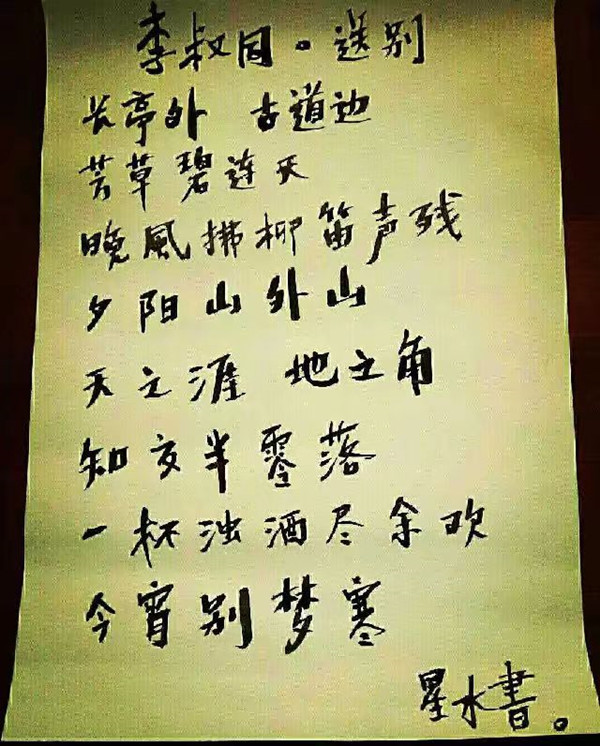 李叔同。送别
长亭外 古道边
芳草碧连天
晚風拂柳笛声残
夕阳山外山
天之涯 地之角
知交半零落
一杯浊酒尽余欢
今宵别梦寒
星水書。